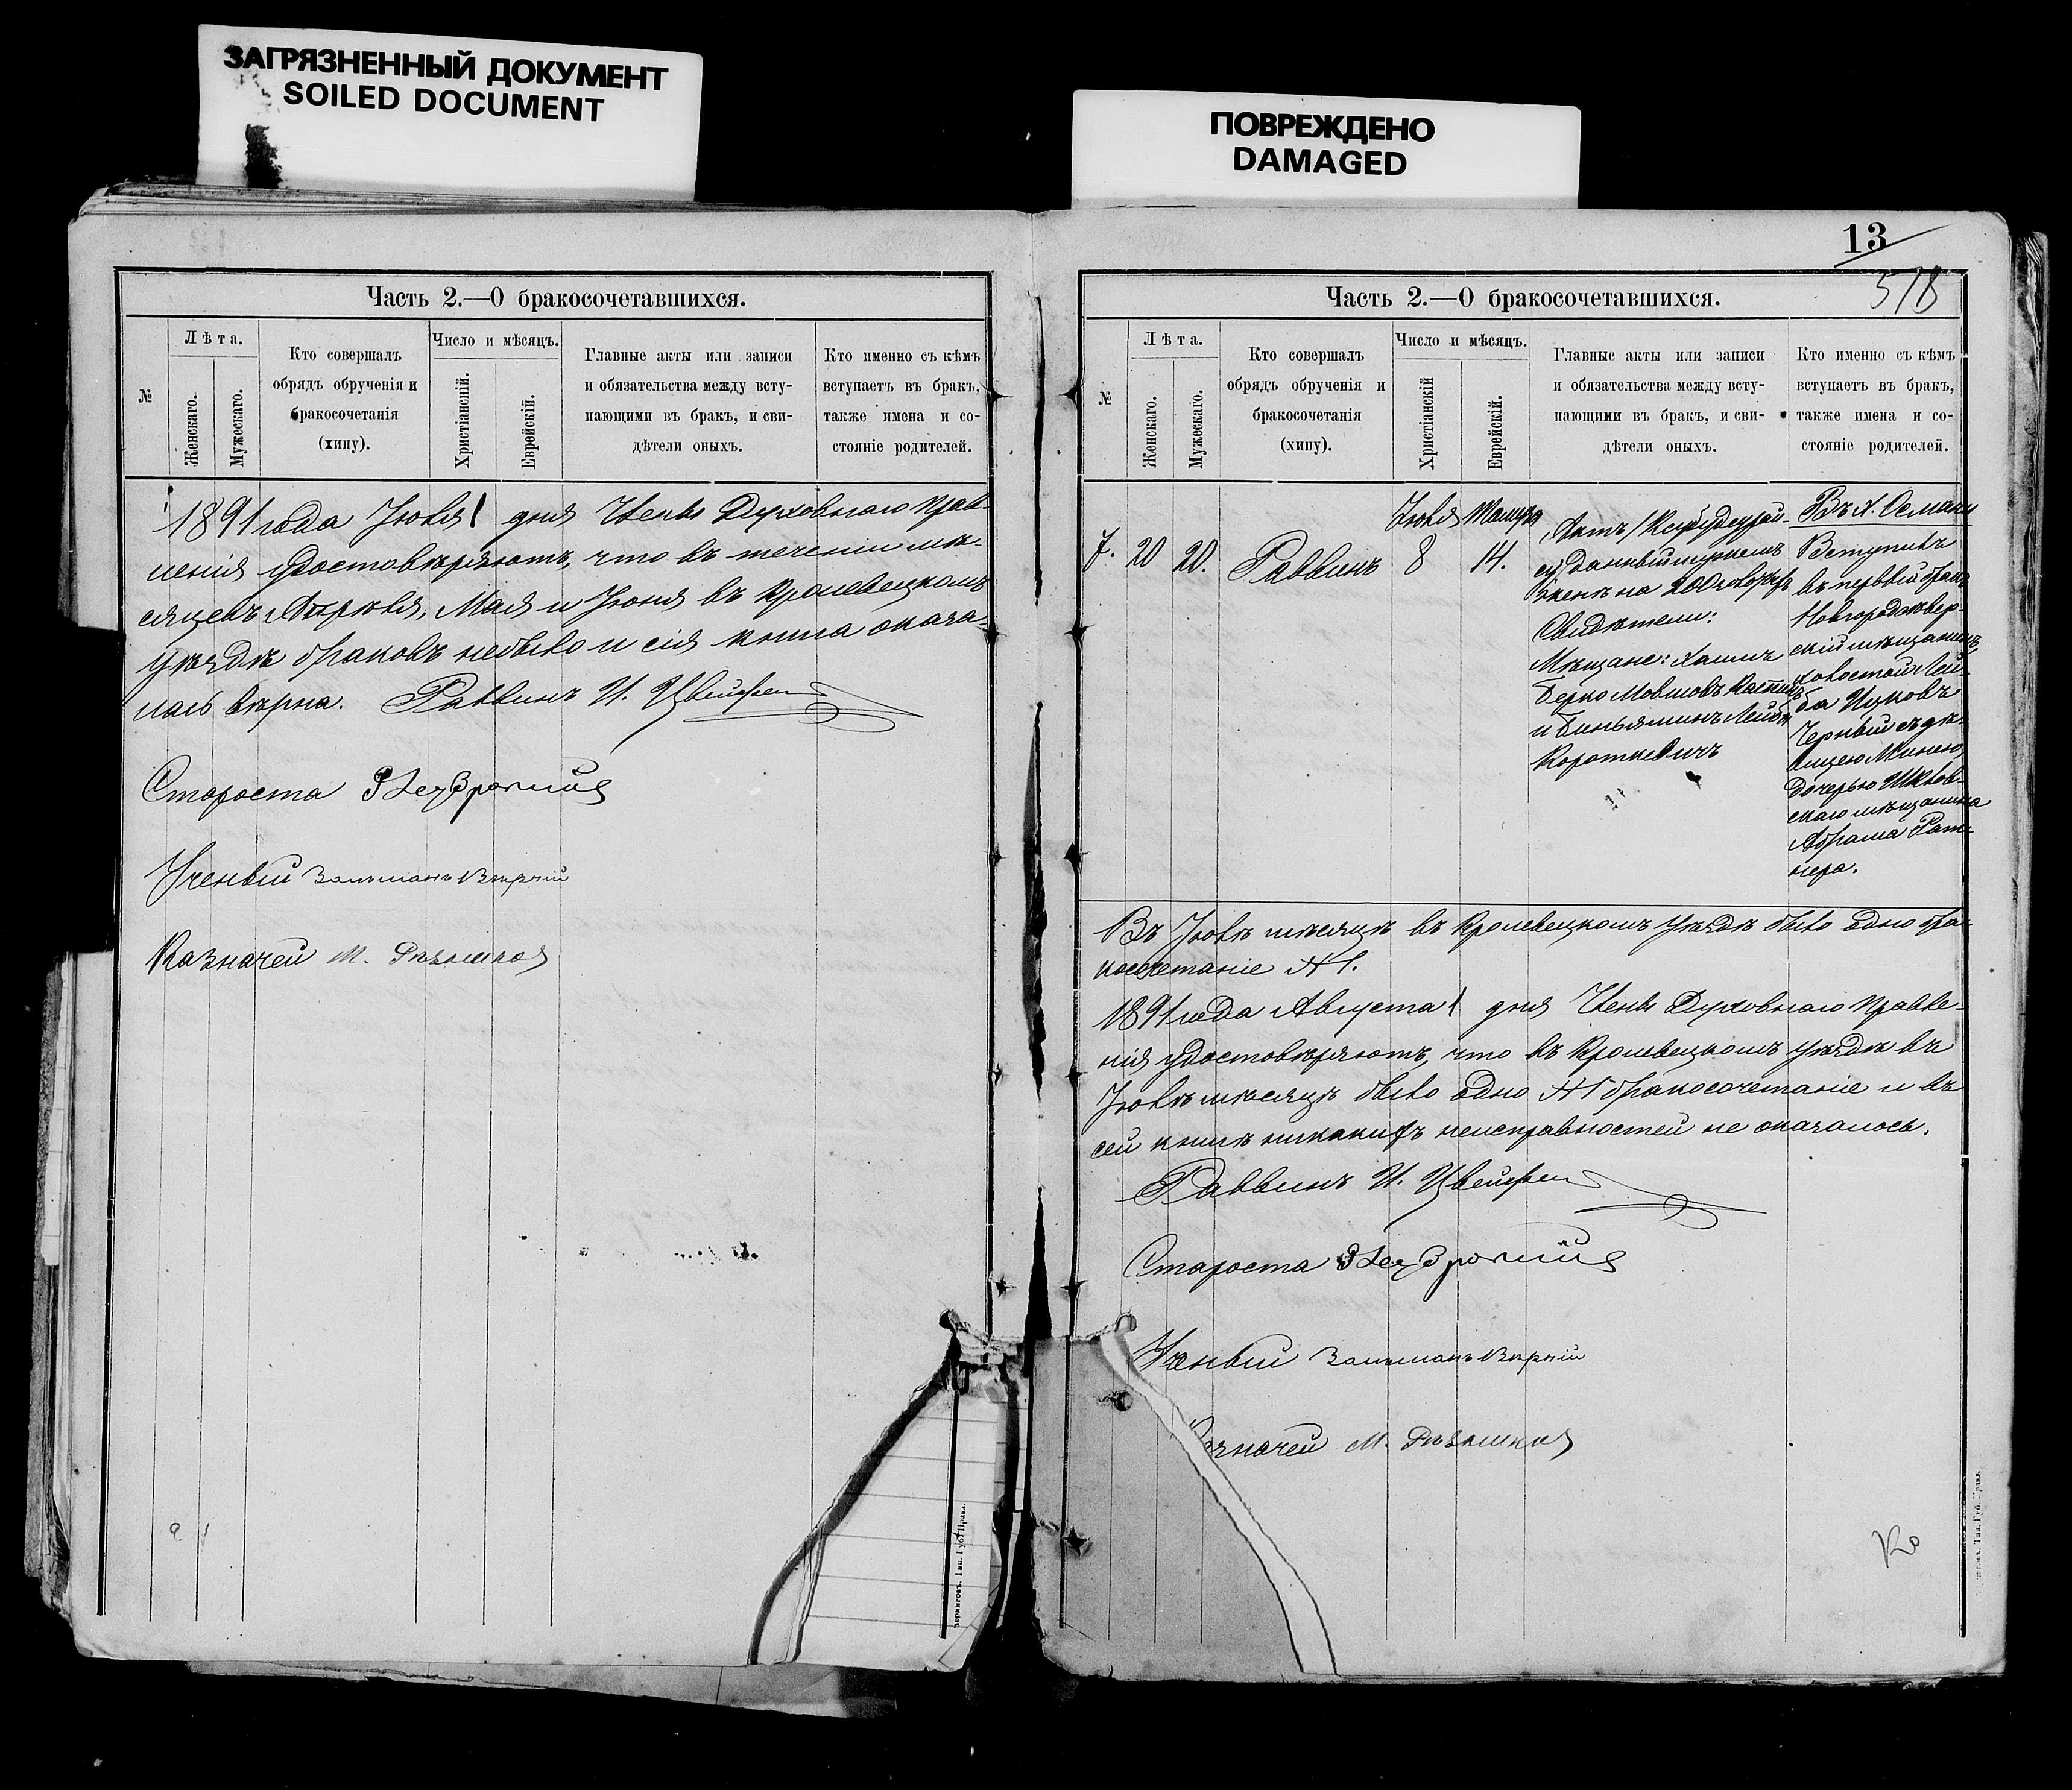 ЗАГРЯЗНЕННЫЙ ДОКУМЕНТ
SOILED DOCUMENT
ПОВРЕЖДЕНО
DAMAGED
Часть 2.—О бракосочетавшихся.
№
Лѣта.
Женскаго.
Мужескаго.
Кто совершалъ
обрядъ обрученія и
бракосочетанія
(хипу).
Число и мѣсяцъ.
Христіанскій.
Еврейскій.
Главные акты или записи
и обязательства между всту-
пающими въ бракъ, и сви-
дѣтели оныхъ.
Кто именно съ кѣмъ
вступаетъ въ бракъ,
также имена и со-
стояніе родителей.
1891 года Іюля 1 дня Члены Духовнаго Прав-
ленія удостовѣряютъ, что въ теченіи мѣ-
сяцевъ Апрѣля, Мая и Іюня въ Кролевецкомъ
уѣздѣ браковъ небыло и сія книга оказа-
лась вѣрна. Раввинъ И. Цвейфел
Староста
Ученый Зальманъ Вѣрній
Казначей М.
13
578
Часть 2.—О бракосочетавшихся.
№
Лѣта.
Женскаго.
Мужескаго.
Кто совершалъ
обрядъ обрученія и
бракосочетанія
(хипу).
Число и мѣсяцъ.
Христіанскій
Еврейскій.
Главные акты или записи
и обязательства между всту-
пающими въ бракъ, и сви-
дѣтели оныхъ.
Кто именно съ кѣмъ
вступаетъ въ бракъ,
также имена и со-
стояніе родителей.
7. 20 20. Раввинъ
Іюля
8
14.
Актъ
данный мужемъ
женѣ на 200
Свидѣтели:
Мѣщане: Хаимъ
Берко Мовшовъ
и Биньяминъ Лейба
Короткевичъ
Въ х.
Вступилъ
въ первый бракъ
Новгородсѣвер-
скій мѣщанинъ,
холостой Лей-
ба Ицковъ
Черный съ дѣ-
вицею Минею,
дочерью Шклов-
скаго мѣщанина
Абрама Рат-
нера.
Въ Іюлѣ мѣсяцѣ въ Кролевецкомъ уѣздѣ было одно бра-
косочетаніе № 1.
1891 года Августа 1 дня Члены Духовнаго Правле-
нія удостовѣряютъ, что въ Кролевецкомъ уѣздѣ въ
Іюлѣ мѣсяцѣ было одно № 1 бракосочетаніе и въ
сей книгѣ никакихъ неисправностей не оказалось.
Раввинъ И. Цвейфел
Староста
Ученый Зальманъ Вѣрній
Казначей М.